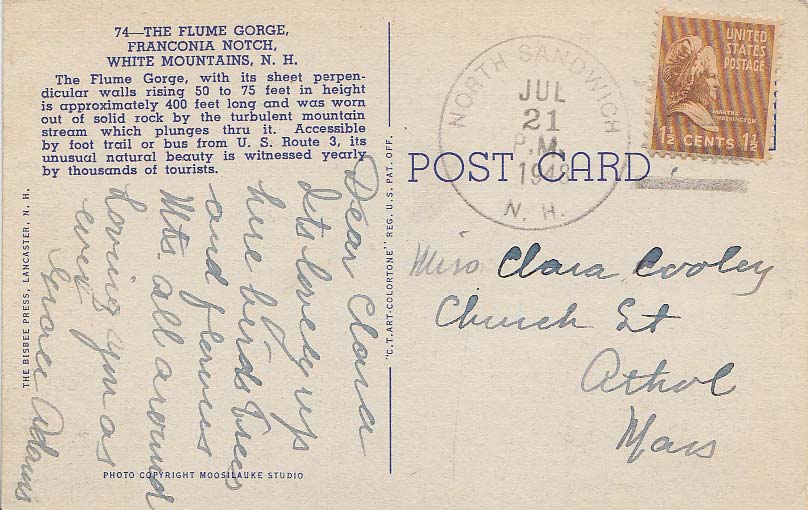 74—THE FLUME GORGE,
FRANCONIA NOTCH,
WHITE MOUNTAINS, N. H.
The Flume Gorge, with its sheet perpen-
dicular walls rising 50 to 75 feet in height
is approximately 400 feet long and was worn
out of solid rock by the turbulent mountain
stream which plunges thru it. Accessible
by foot trail or bus from U. S. Route 3, its
unusual natural beauty is witnessed yearly
by thousands of tourists.
Dear Clara
Its lovely up
here birds Trees
and flowers
Mts. all around
Loving you as
ever
Grace Adams
THE BISBEE PRESS, LANCASTER, N. H.
PHOTO COPYRIGHT MOOSILAUKE STUDIO
"C.T. ART-COLORTONE" REG. U.S. PAT. OFF.
POST CARD
NORTH SANDWICH
JUL
21
P.M.
1948
N. H.
UNITED
STATES
POSTAGE
MARTHA
WASHINGTON
1½ CENTS 1½
Miss Clara Cooley
Church St
Athol
Mass